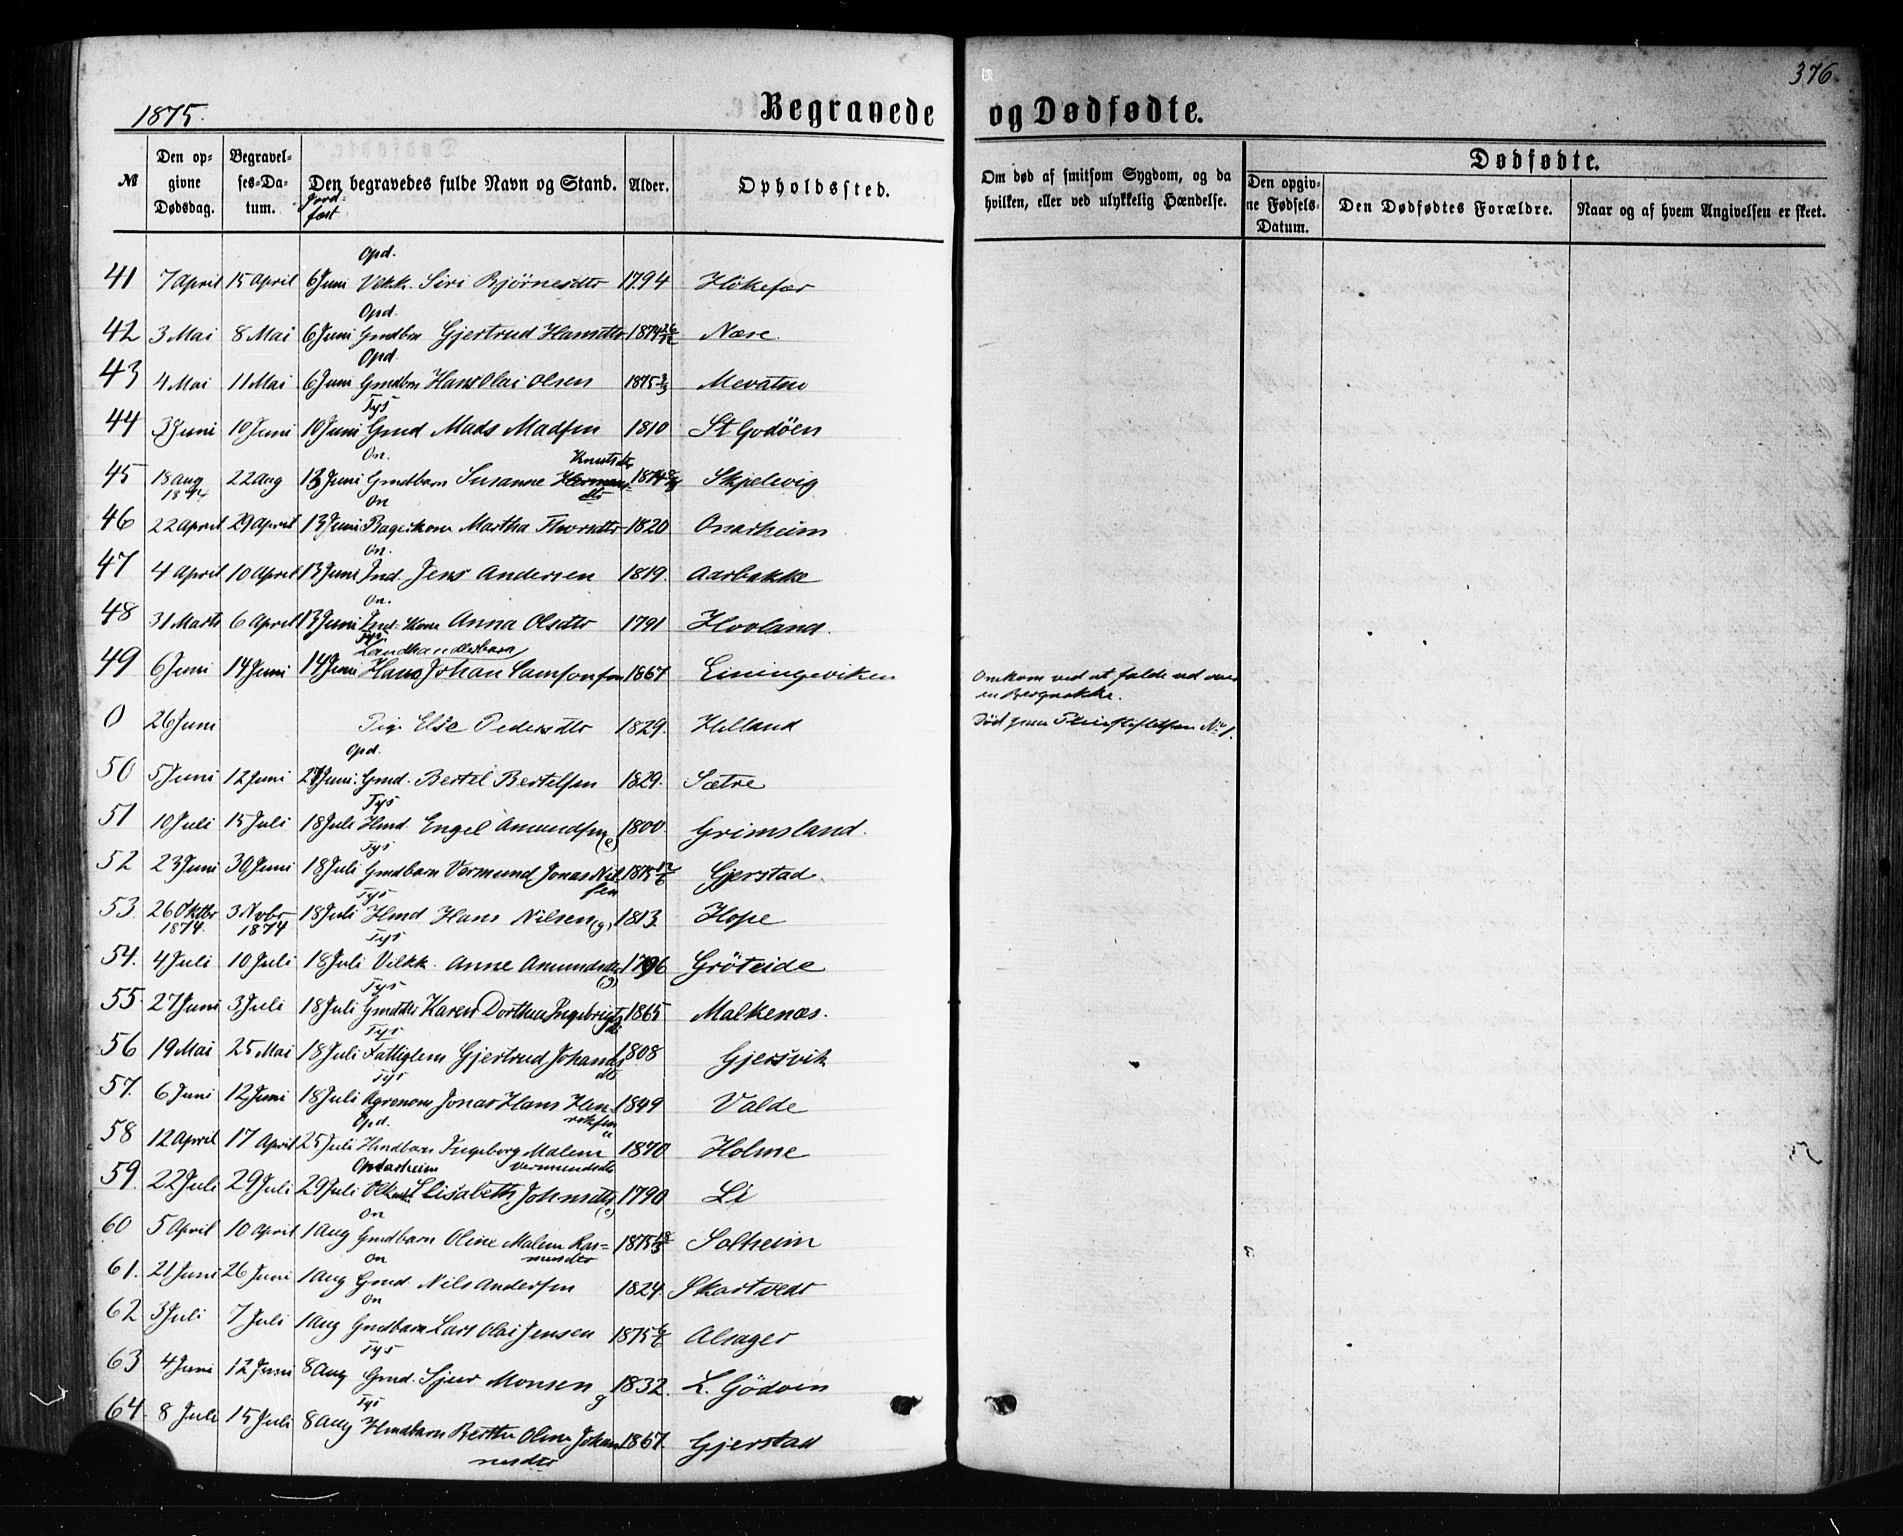 376
1875.
Begravede og Dødfødte.
№
Den op-
givne
Dødsdag.
Begravel-
ses-Da-
tum.
Den begravedes fulde Navn og Stand.
Jord-
fæst
Alder.
Opholdssted.
Om død af smitsom Sygdom, og da
hvilken, eller ved ulykkelig Hændelse.
Dødfødte.
Den opgiv-
ne Fødsels-
Datum.
Den Dødfødtes Forældre.
Naar og af hvem Angivelsen er skeet.
Opd.
41 7 April 15 April 6 Juni Vekk. Siri Bjørnesdtr 1794 Høkefær
Opd.
42 3 Mai 8 Mai 6 Juni Gmdbrn Gjertrud Hansdtr 1874 Nære.
Opd.
43 4 Mai 11 Mai 6 Juni Gmdbrn Hans Olai Olsen 1875 Mevatne
Tys
44 3 Juni 10 Juni 10 Juni Gmd Mads Madsen 1810 St Godøen
On. Knutsdtr
45 18 Aug 22 Aug 13 Juni Gmdbarn Susanne 1874 Skjelevig
1874
On
46 22 April 29 April 13 Juni Martha Thorsdtr 1820 Onarheim
On.
47 4 April 10 April 13 Juni Ind. Jens Andersen 1819. Aarbakke
On.
48 31 Marts 6 April 13 Juni Ind. Kone Anna Olsdtr 1791 Hovland.
Tys.
Landhandlerbarn
49 6 Juni 14 Juni 14 Juni Hans Johan Samsonsen 1867 Einingeviken Omkom ved at falde ud over
en Bergnakke.
0 26 Juni Pige Else Pedersdtr 1829. Helland Død paa Pleiestiftelsen No 1.
Opd.
50 5 Juni 12 Juni 27 Juni Gmd. Bertel Bertelsen 1829. Sætre
Tys
51 10 Juli 15 Juli 18 Juli Hmd. Engel Amundsen (e) 1800 Grimsland.
Tys
52 23 Juni 30 Juni 18 Juli Gmdbarn Vermund Jonas Nil-
sen 1875 Gjerstad.
Tys
53. 26 Oktbr 3 Novbr 18 Juli Hmd Hans Nilsen (g) 1813. Hope
1874. 1874
Tys
54. 4 Juli 10 Juli 18 Juli Vekk. Anne Amundsdtr 1796 Grøteide
Tys
55. 27 Juni 3 Juli 18 Juli Karen Dorthea Ingebrigts
dtr 1865 Malkenæs.
Tys
56 19 Mai 25 Mai 18 Juli Fattiglem Gjertrud Johannes
dtr 1808 Gjersvik
Tys
57. 6 Juni 12 Juni 18 Juli Agronom Jonas Hans Hen-
riksen 1849 Valde
Opd.
58 12 April 17 April 25 Juli Hmdbarn Ingeborg Malene
Vermundsdtr 1870 Holme
Onarheim
59. 22 Juli 29 Juli 29 Juli Elisabeth Johnsdtr 1790 Li
On
60 5 April 10 April 1 Aug Gmdbarn Oline Malene Ras-
musdtr 1875 Solheim
On
61. 21 Juni 26 Juni 1 Aug Gmd. Nils Andersen 1824. Skartvedt
On
62 3 Juli 7 Juli 1 Aug Gmdbarn Lars Olai Jensen 1875 Alsager
Tys
63 4 Juni 12 Juni 8 Aug Gmd. Sjur Monsen g 1832. L. Gödöen
Tys
64. 8 Juli 15 Juli 8 Aug Hmdbarn Berthe Oline Johan-
nesdtr 1867. Gjerstad